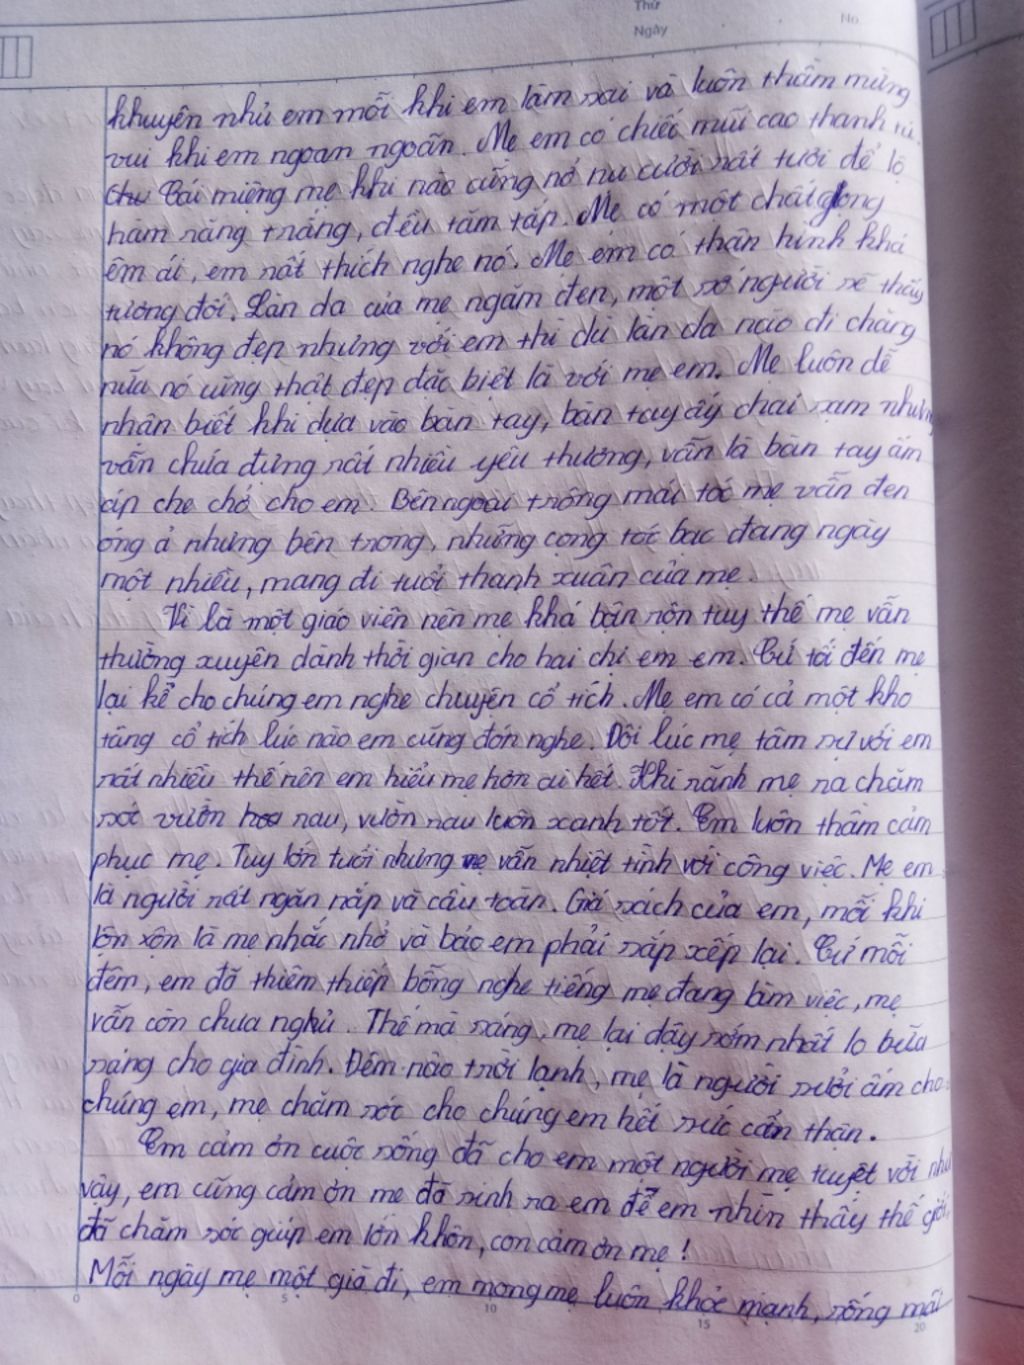 Thứ
Ngày
No
khuyên nhủ em mỗi khi em làm sai và luôn thầm mừng
vui khi em ngoan ngoãn. Mẹ em có chiếc mũi cao thanh tú.
Cái miệng mẹ khi nào cũng nở nụ cười rất tươi để lộ
hàm răng trắng, đều tăm tắp. Mẹ có một chất giọng
êm ái, em rất thích nghe nó. Mẹ em có thân hình khá
tương đối. Làn da của mẹ ngăm đen, một số người sẽ thấy
nó không đẹp nhưng với em thì dù làn da nào đi chăng
nữa nó cũng thật đẹp đặc biệt là với mẹ em. Mẹ luôn dễ
nhận biết khi dựa vào bàn tay, bàn tay ấy chai sạm nhưng
vẫn chứa đựng rất nhiều yêu thương, vẫn là bàn tay ấm
áp che chở cho em. Bên ngoài trông mái tóc mẹ vẫn đen
óng ả nhưng bên trong, những cọng tóc bạc đang ngày
một nhiều, mang đi tuổi thanh xuân của mẹ.
Vì là một giáo viên nên mẹ khá bận rộn tuy thế mẹ vẫn
thường xuyên dành thời gian cho hai chị em em. Cứ tối đến mẹ
lại kể cho chúng em nghe chuyện cổ tích. Mẹ em có cả một kho
tàng cổ tích lúc nào em cũng đón nghe. Đôi lúc mẹ tâm sự với em
rất nhiều thế nên em hiểu mẹ hơn ai hết. Khi rảnh mẹ ra chăm
sóc vườn rau, vườn rau luôn xanh tốt. Em luôn thầm cảm
phục mẹ. Tuy lớn tuổi nhưng mẹ vẫn nhiệt tình với công việc. Mẹ em
là người rất ngăn nắp và cầu toàn. Giá sách của em, mỗi khi
lộn xộn là mẹ nhắc nhở và bảo em phải sắp xếp lại. Cứ mỗi
đêm, em đã thiêm thiếp bỗng nghe tiếng mẹ đang làm việc, mẹ
vẫn còn chưa ngủ. Thế mà sáng, mẹ lại dậy sớm nhất lo bữa
sáng cho gia đình. Đêm nào trời lạnh, mẹ là người sưởi ấm cho
chúng em, mẹ chăm sóc cho chúng em hết sức cẩn thận.
Em cảm ơn cuộc sống đã cho em một người mẹ tuyệt vời như
vậy, em cũng cảm ơn mẹ đã sinh ra em để em nhìn thấy thế giới,
đã chăm sóc giúp em lớn khôn, con cảm ơn mẹ!
Mỗi ngày mẹ một già đi, em mong mẹ luôn khỏe mạnh, sống mãi
0 5 10 15 20